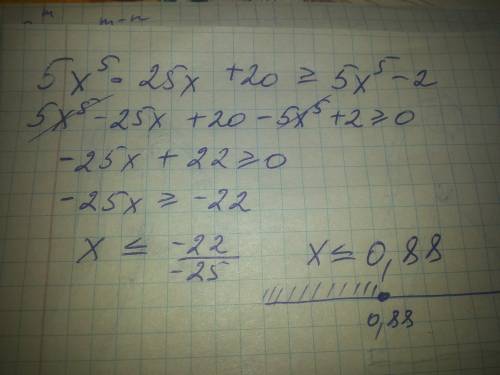 m m-n
5x⁵ - 25x + 20 ≥ 5x⁵ - 2
5x⁵ - 25x + 20 - 5x⁵ + 2 ≥ 0
-25x + 22 ≥ 0
-25x ≥ -22
x ≤ -22/-25 x ≤ 0,88
0,88